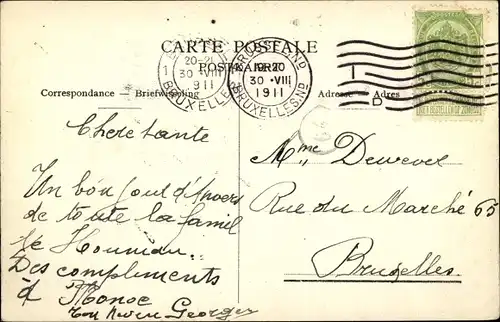 CARTE POSTALE
POSTKAART
Correspondance — Briefwisseling
Adresse — Adres
BRUXELLES
20-21
30 -VIII
1911
BRUXELLES.ND
19-20
30 -VIII
1911
BRUXELLES.ND
1
D
Chere tante
Un bon jour d'Anvers
de toute la famil
le
Des compliments
à
Georges
Mme Dewever
Rue du Marché 65
Bruxelles.